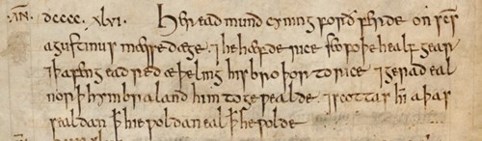 ·AN̄· dcccc.xlvi. Her eadmund cyning forðferde on sc̄s
agustinus mæssedæge. ⁊ he hæfde rice seofoþe healf gear
⁊ þa feng eadred æþeling his broþor to rice ⁊ gerad eal
norþhymbra land him to gewealde. ⁊ scottas him aþas
sealdan ꝥ hie woldan eal ꝥ he wolde